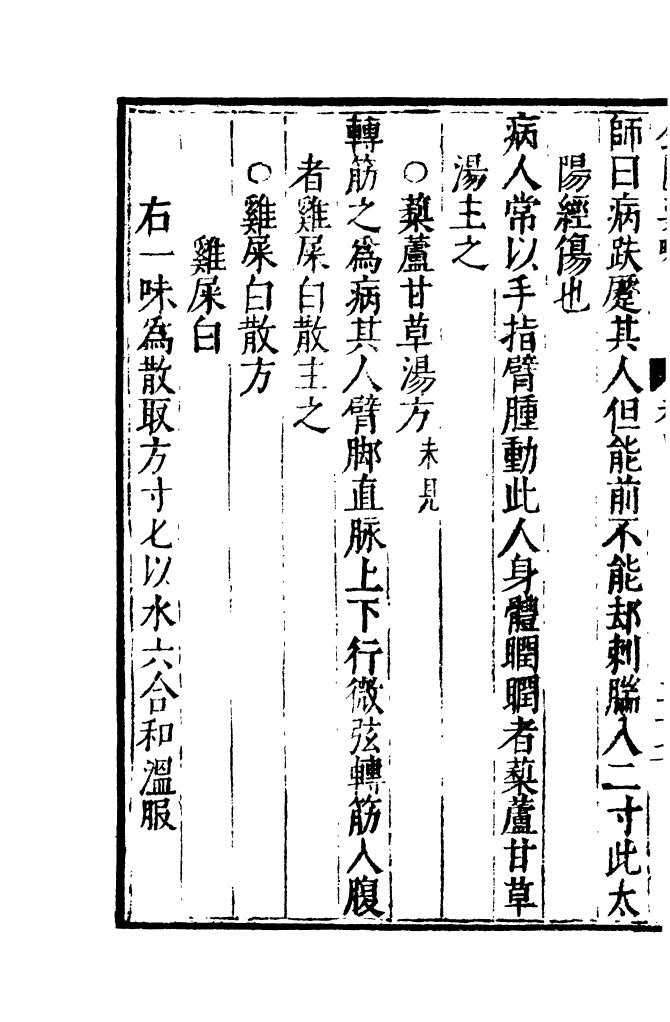 師曰病趺蹷其人但能前不能却刺腨入二寸此太
陽經傷也
病人常以手指臂腫動此人身體瞤瞤者蔾蘆甘草
湯主之
○蔾蘆甘草湯方未見
轉筋之爲病其人臂脚直脉上下行微弦轉筋入腹
者雞屎白散主之
○雞屎白散方
雞屎白
右一味爲散取方寸七以水六合和溫服